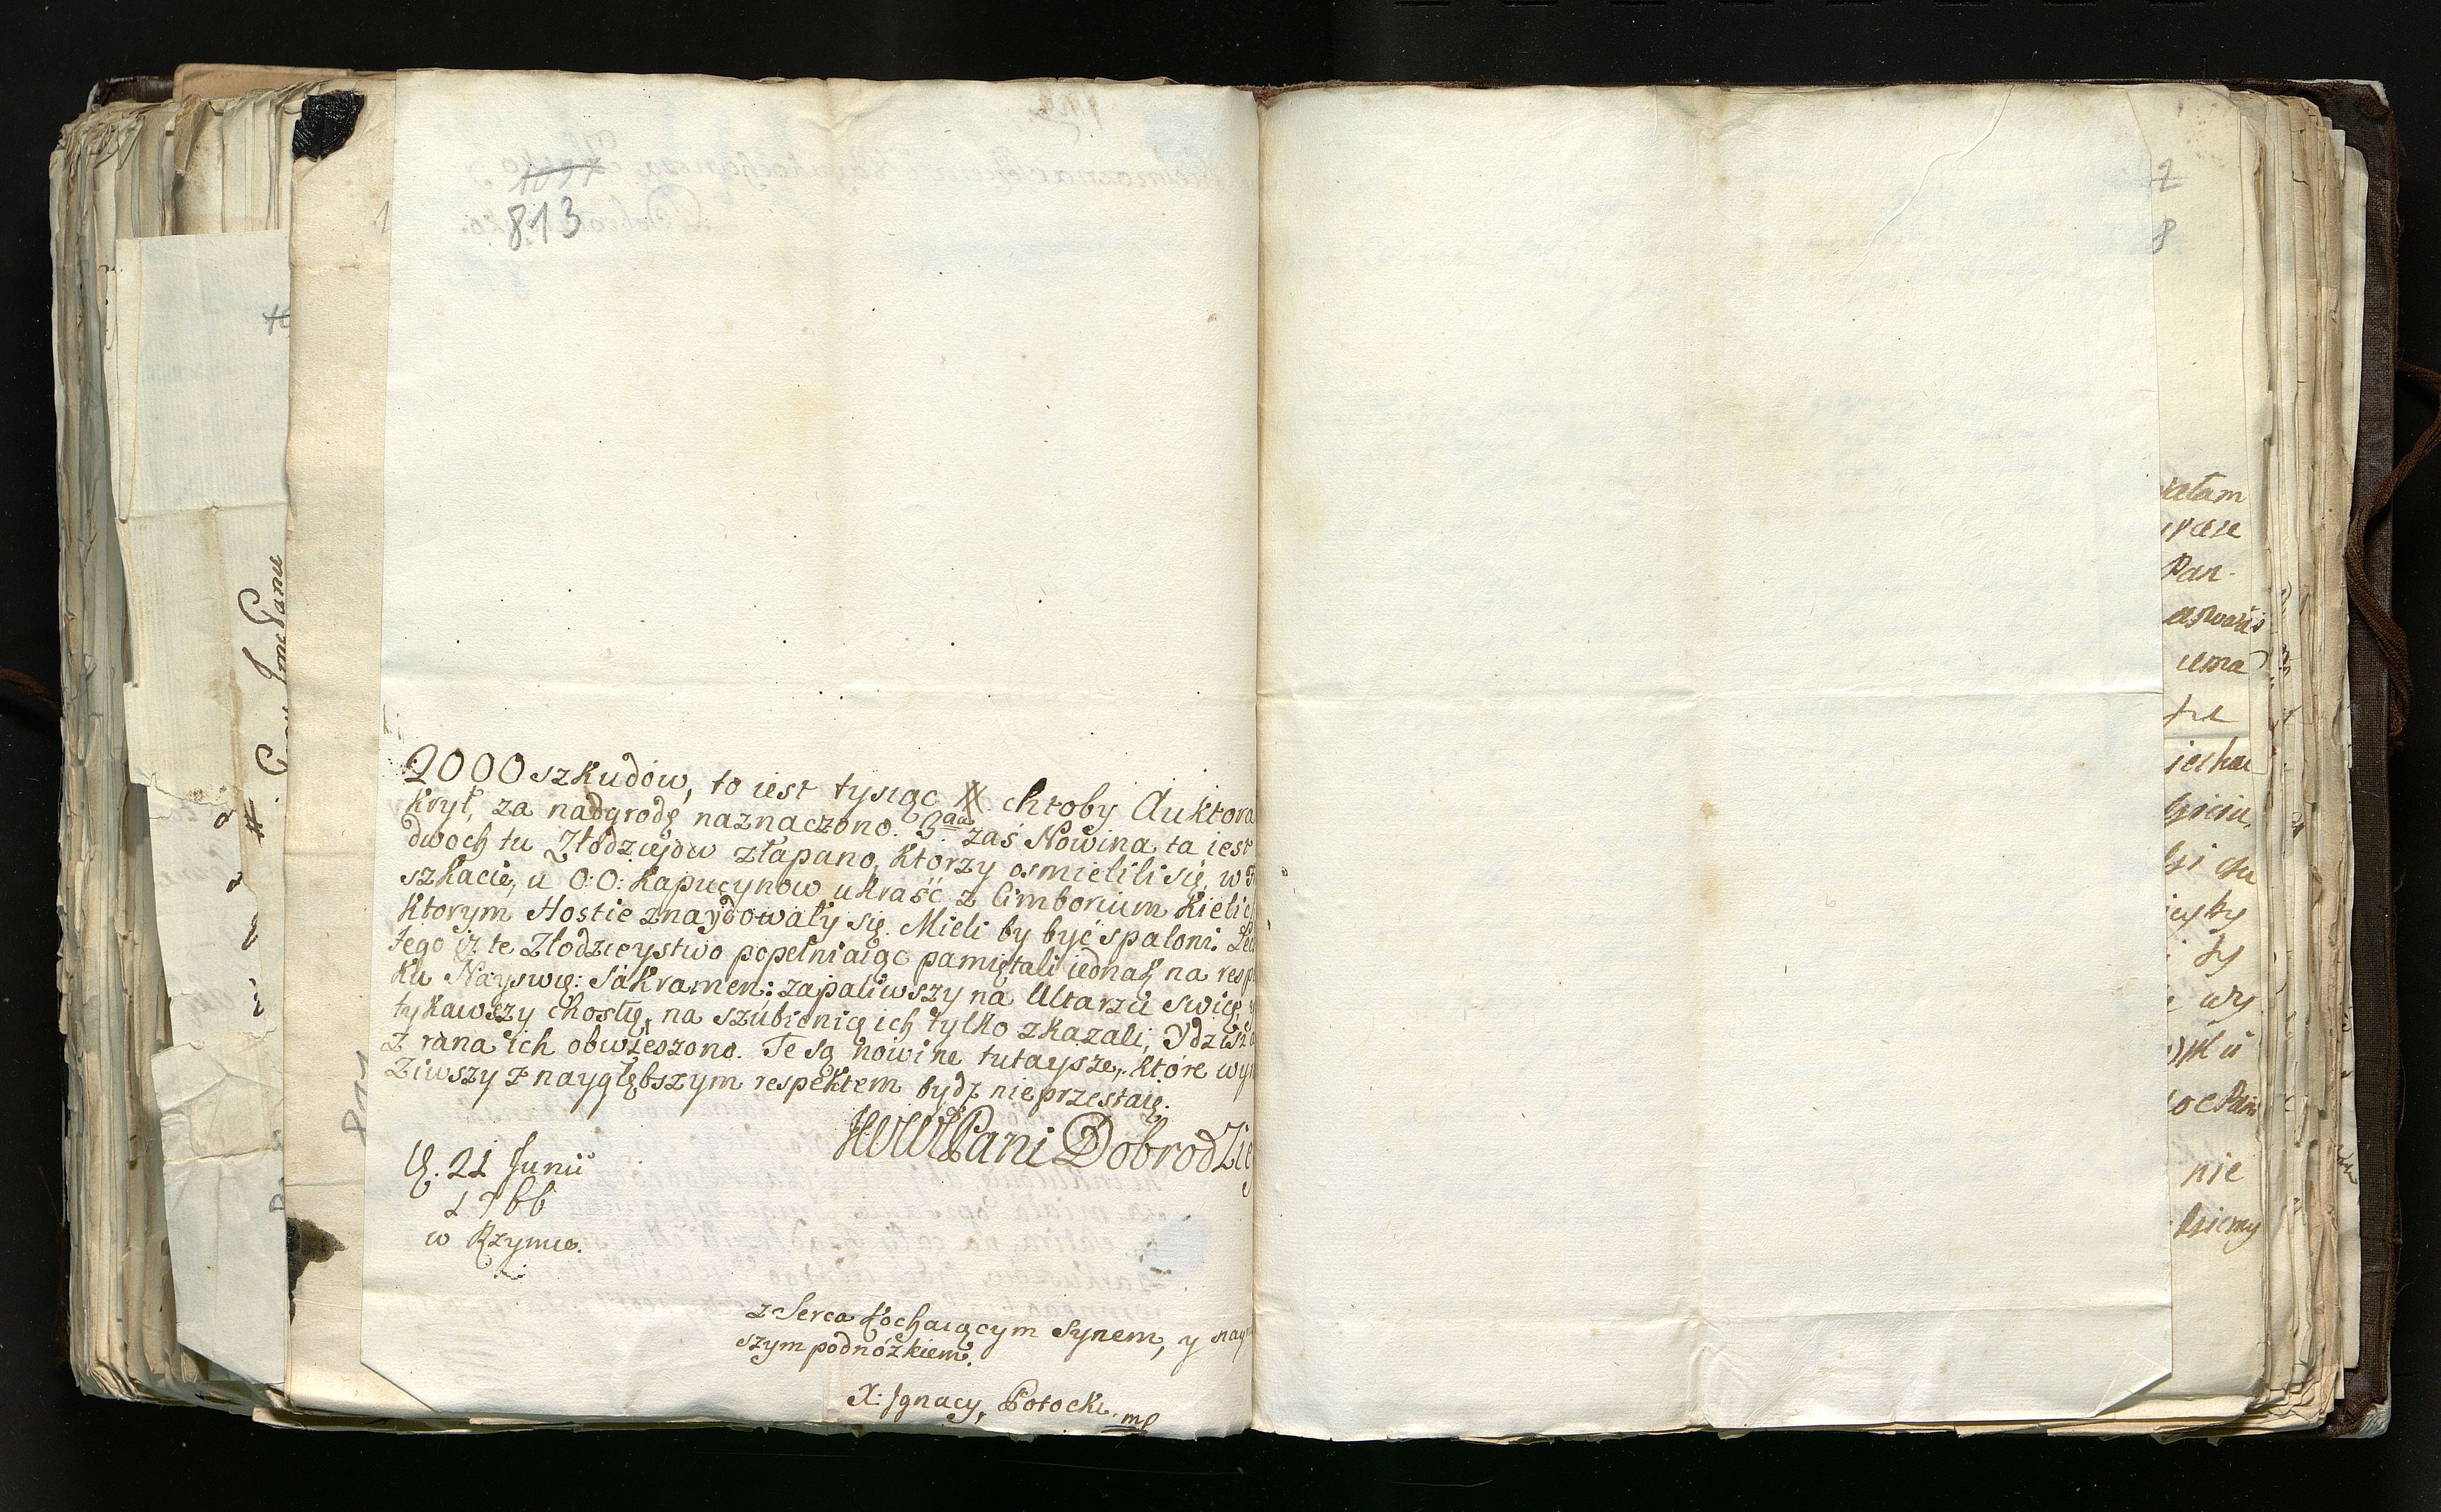 1097
813
2000 szkudów, to iest tysiąc # chtoby Auktora
Krył, za nadgrodę naznaczono. 3aa zaś Nowina ta iest
dwoch tu Złodzieiow złapano, ktorzy osmielili się, w
szkacie, u O: O: Kapucynow ukraść z Cimborium Kielic
Ktorym Hostie znaydowały się. Mieli by być spaloni. Lec
tego iż te Złodzieystwo popełniaiąc pamiętali iednak na resp
ku Nayswię: Sakramen: zapaliwszy na Ołtarzu swicę,
tykawszy chostię, na szubienicę ich tylko zkazali, Y dziś
z rana ich obwieszono. Te są nowine tutaysze, które wyr
Ziwszy z naygłębszym respektem bydz nie przestaię.
JWWPani Dobrodzie
D. 21 Junii
1766
w Rzymie.
z Serca Kochaiącym Synem, y nay
szym podnóżkiem.
X: Jgnacy, Potocki. mp
Jmc Panu
7
8
Pan
nie